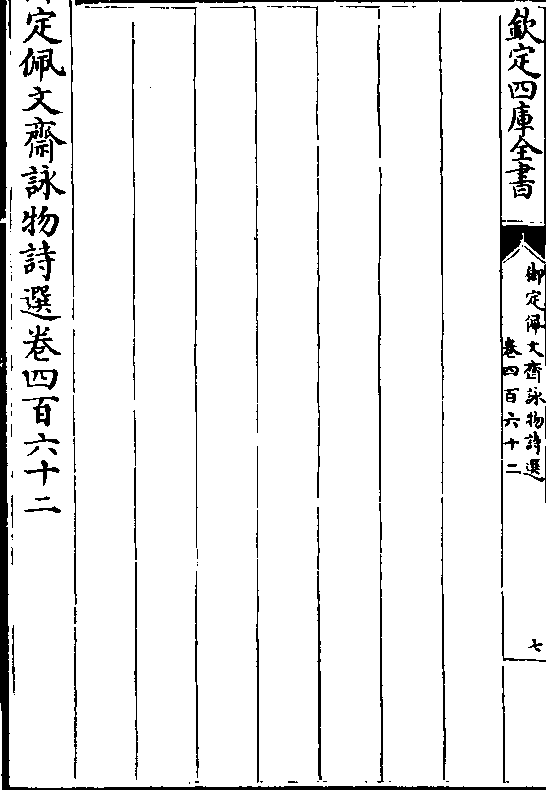 欽定四庫全書
御定佩文齋詠物詩選
卷四百六十二
七
定佩文齋詠物詩選卷四百六十二